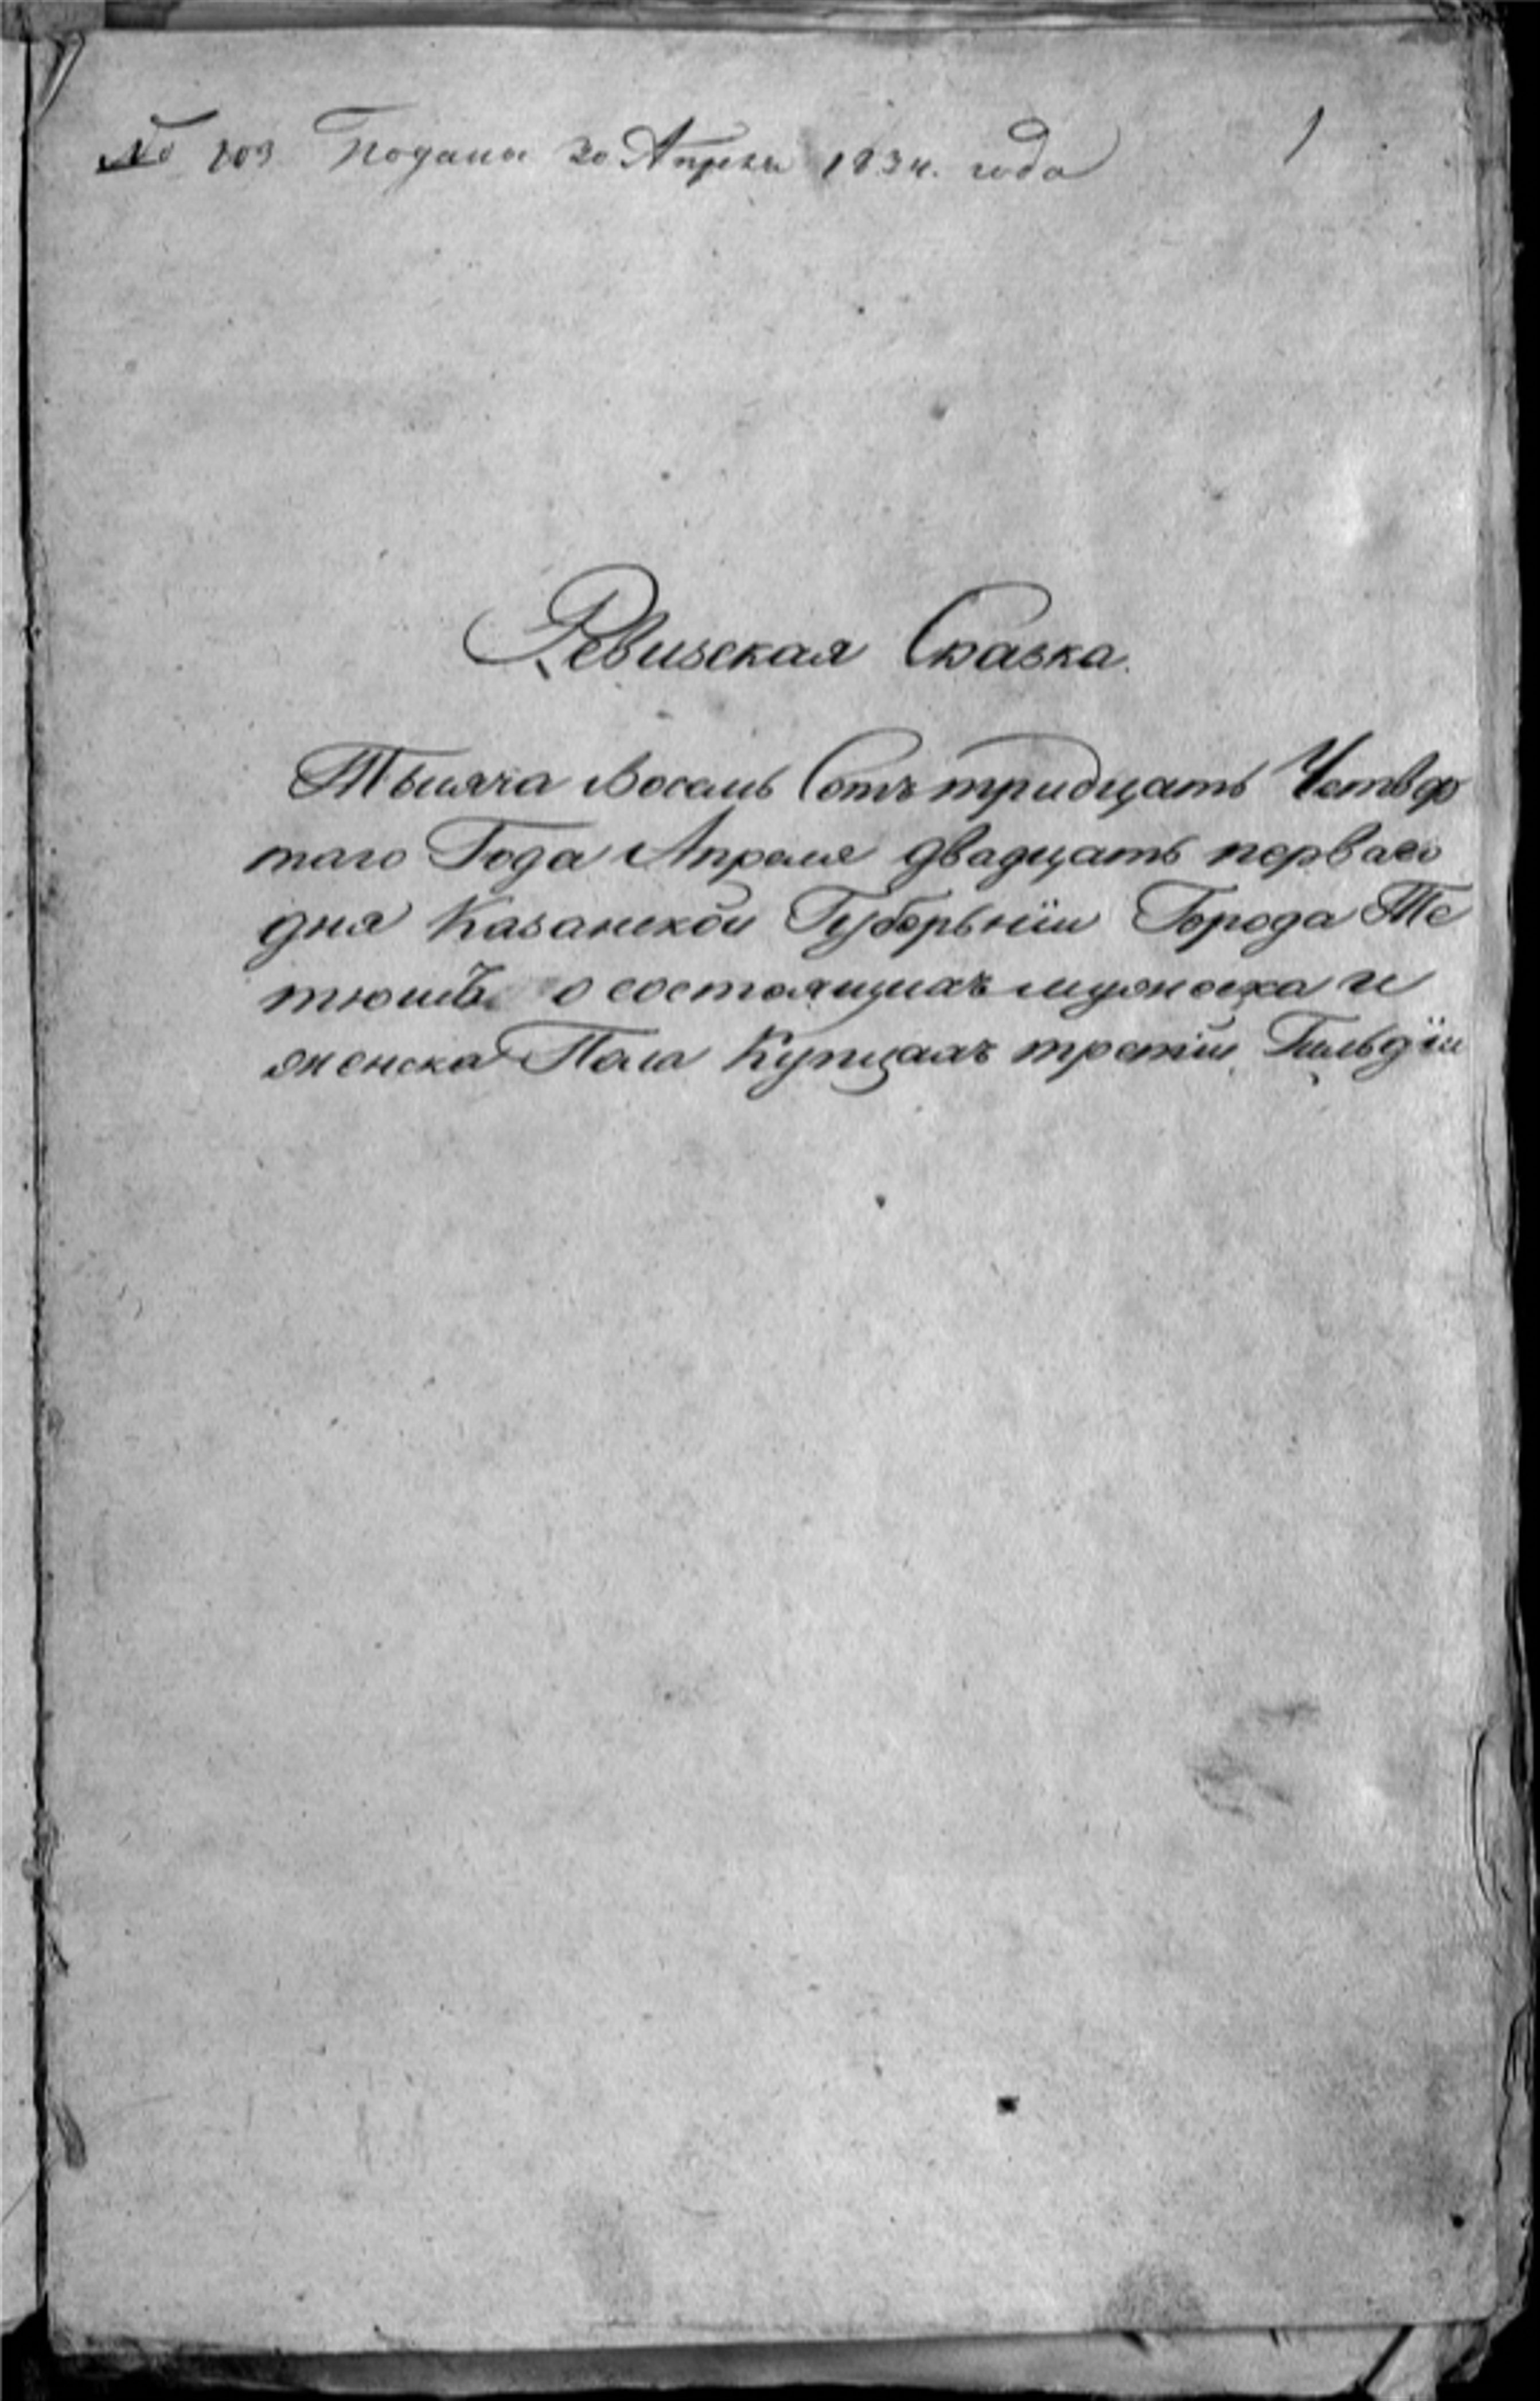 № 103 Подана 30 Апреля 1834. года 1
Ревизская Сказка.
Тысяча Восемь Сотъ тридцать Четвер
таго Года Апреля двадцать перваго
дня Казанской Губерьніи Города Те
тюшъ о состоящихъ мужеска и
женска Пола Купцахъ третіи Гильдіи